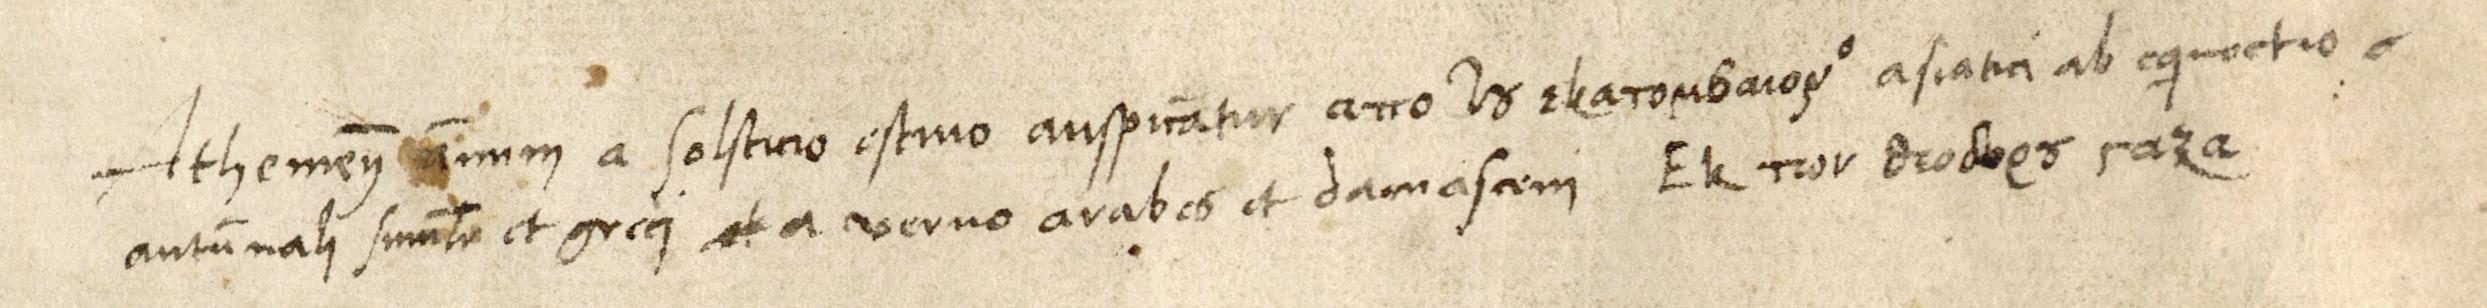 Atheniẽsẽs ãnum a solsticio estiuo auspicãtur απο τȣ εκατομβαιονοͦ asiatici ab equinoctio a
autũnali simlr̃ et greci et a verno arabes et damasceni Εκ των θεοδωρȣ γαζα